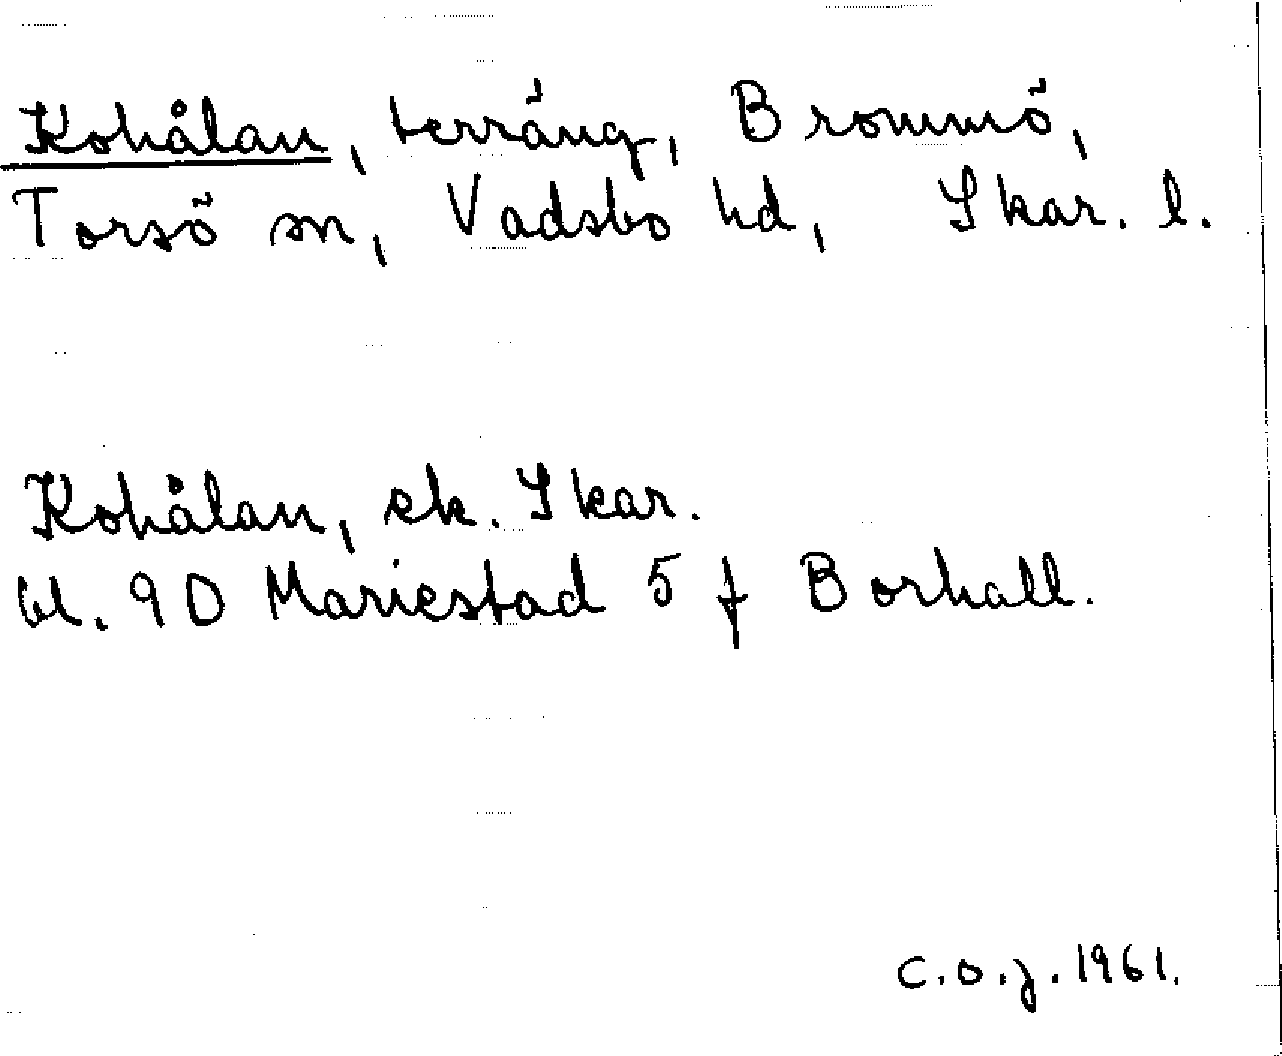 Kohålan, terräng, Brommö,
Torsö sn, Vadsbo hd, Skar. l.
Kohålan, ek. Skar.
bl. 9D Mariestad 5 f Borhall.
C.O.J. 1961.